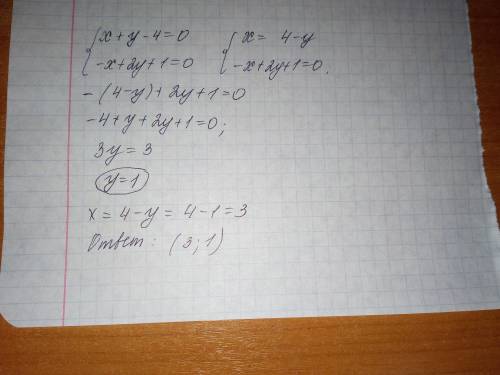 {x+y-4=0 {x= 4-y
{-x+2y+1=0 {-x+2y+1=0.
-(4-y)+2y+1=0
-4+y+2y+1=0;
3y=3
y=1
x=4-y=4-1=3
Ответ: (3;1)